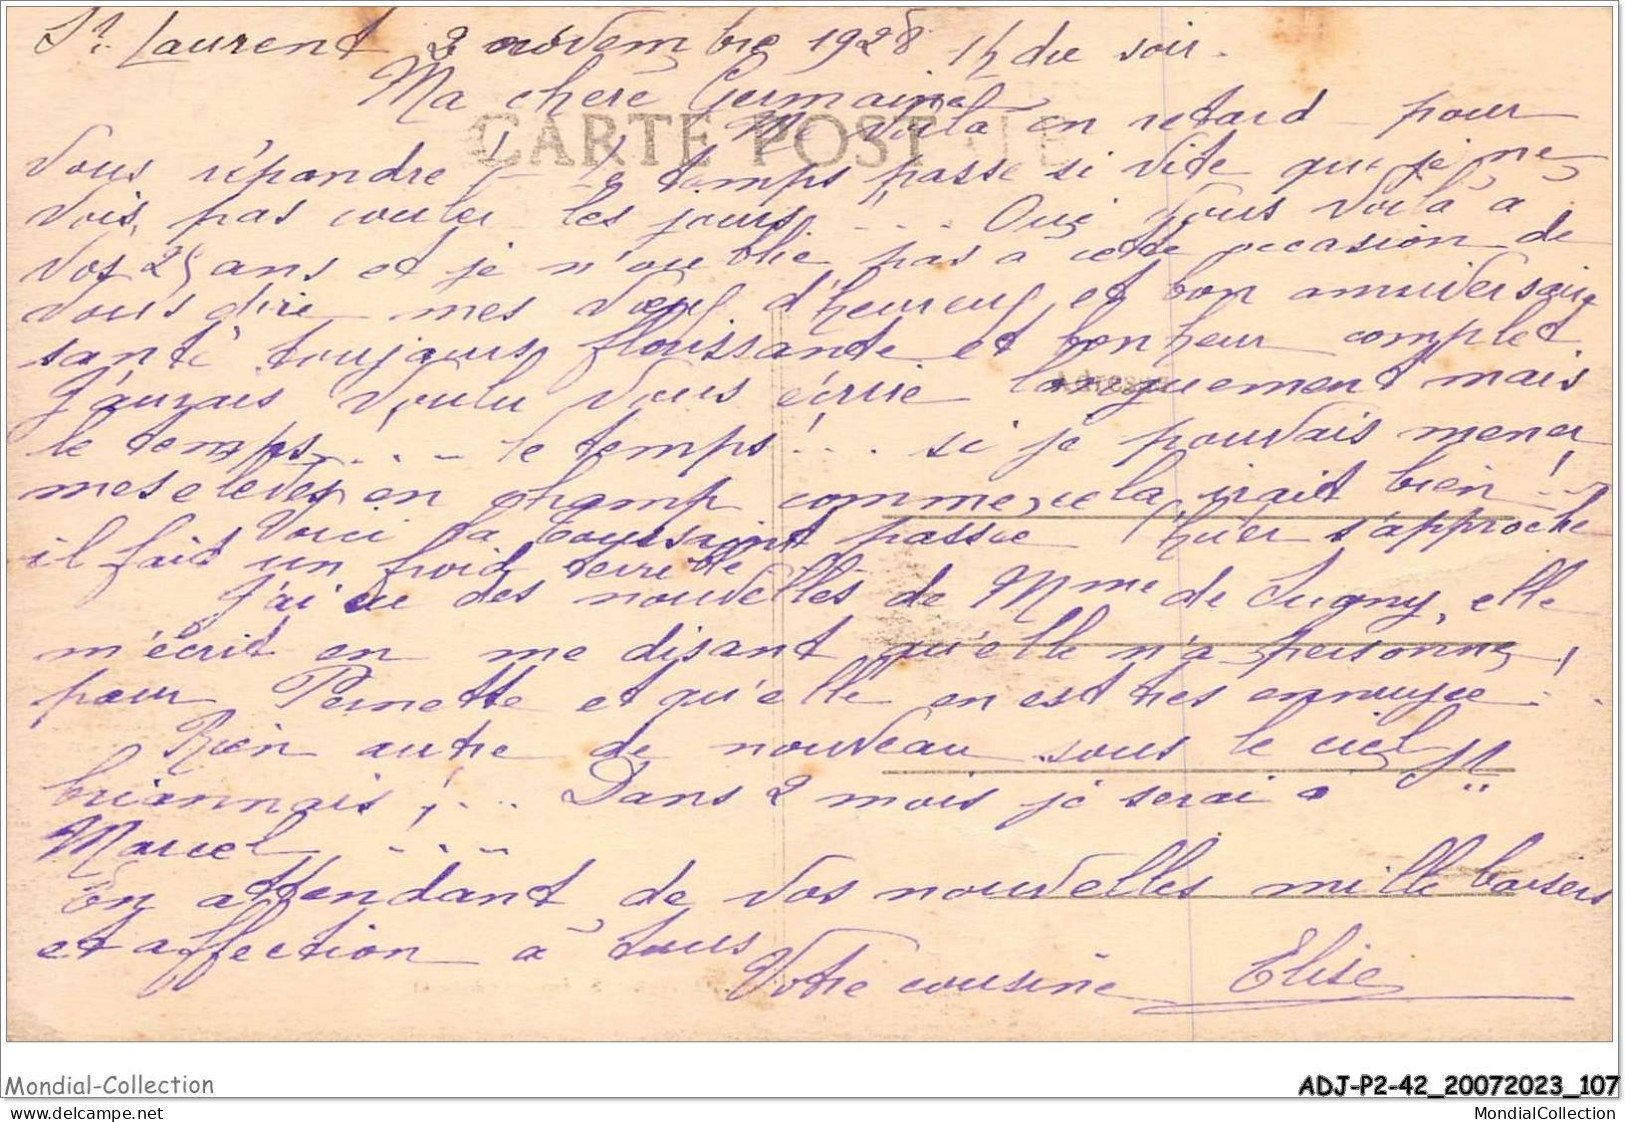 St Laurent 3 novembre 1928 1h du soir.
Ma chère Germaine
CARTE POSTALE
Me voilà en retard pour
vous répondre ! Le temps passe si vite que je ne
vois pas couler les jours.... Oui vous voilà à
vos 25 ans et je n'oublie pas à cette occasion de
vous dire mes vœux d'heureux et bon anniversaire
santé toujours florissante et bonheur complet.
Adresse
J'aurais voulu vous écrire longuement mais
le temps.... le temps!... si je pouvais mener
mes eleves en champ comme cela irait bien!..
Voici la Toussaint passée l'hiver s'approche
il fait un froid terrible...
J'ai eu des nouvelles de Mme de Sugny, elle
m'écrit en me disant qu'elle n'a personne,
pour Pernette et qu'elle en est très ennuyée!..
Rien autre de nouveau sous le ciel
briannais!... Dans 2 mois je serai à St
Marcel ....
En attendant de vos nouvelles mille baisers
et affection à tous
Votre cousine Elise
Mondial-Collection
ADJ-P2-42_20072023_107
www.delcampe.net
MondialCollection